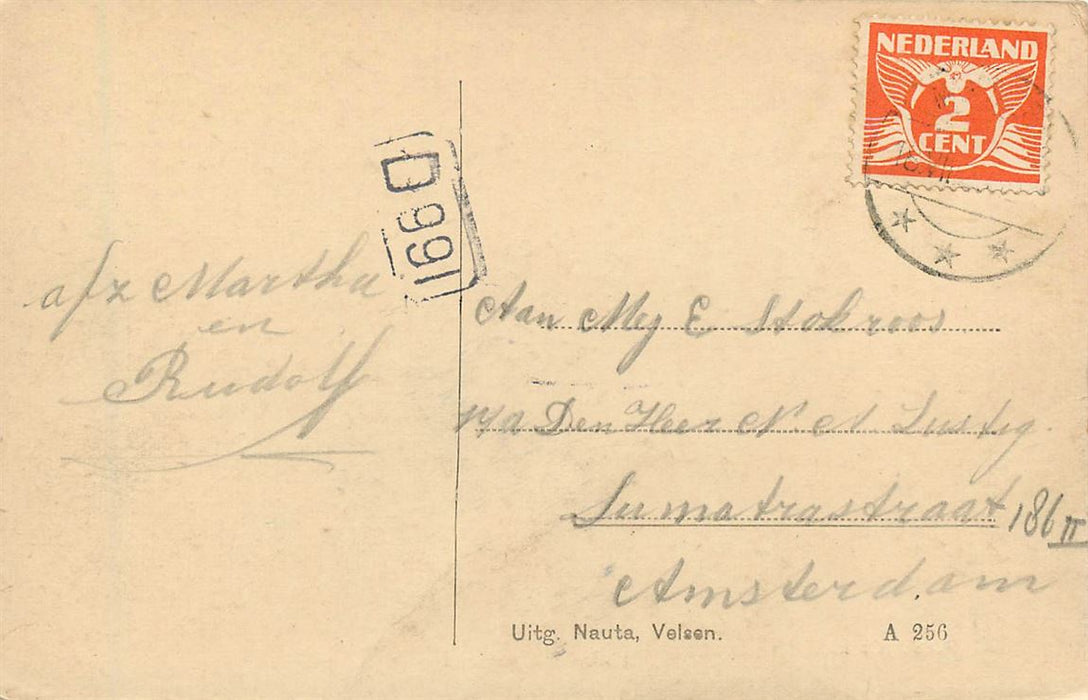 NEDERLAND
2
CENT
VII
D 991
afz Martha
en
Rudolf
Aan Mej E Stokroos
p/a Den Heer N. N. Lustig
Sumatrastraat 186 II
Amsterdam
Uitg. Nauta, Velsen.
A 256